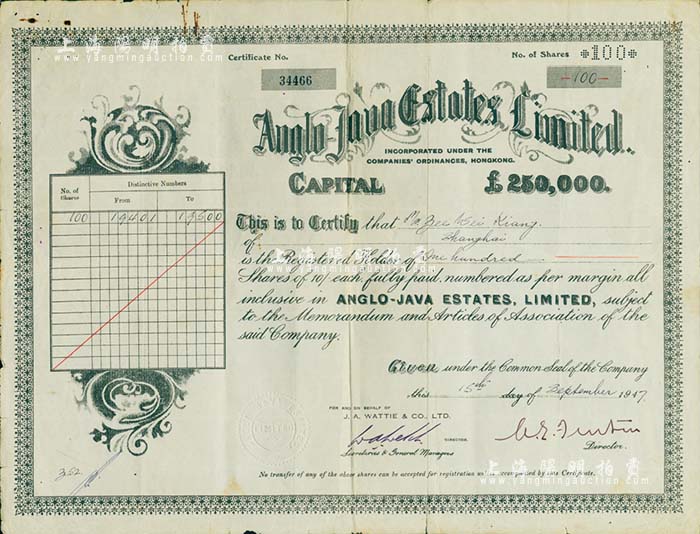 上海陽明拍賣
www.yangmingauction.com
Certificate No.
34466
No. of Shares *100*
-100-
Anglo-Java Estates, Limited.
INCORPORATED UNDER THE
COMPANIES' ORDINANCES, HONGKONG.
CAPITAL £250,000.
No. of Shares
Distinctive Numbers
From To
100 19401 19500
This is to Certify that Zee Wei Kiang.
of Shanghai
is the Registered Holder of One hundred
Shares of 10/- each, fully paid, numbered as per margin all
inclusive in ANGLO-JAVA ESTATES, LIMITED, subject
to the Memorandum and Articles of Association of the
said Company.
Given under the Common Seal of the Company
this 15th day of September 1947.
FOR AND ON BEHALF OF
J. A. WATTIE & CO., LTD.
DIRECTOR.
Secretaries & General Managers
Director.
No transfer of any of the above shares can be accepted for registration unless accompanied by this Certificate.
上海陽明拍賣
www.yangmingauction.com
上海陽明拍賣
www.yangmingauction.com